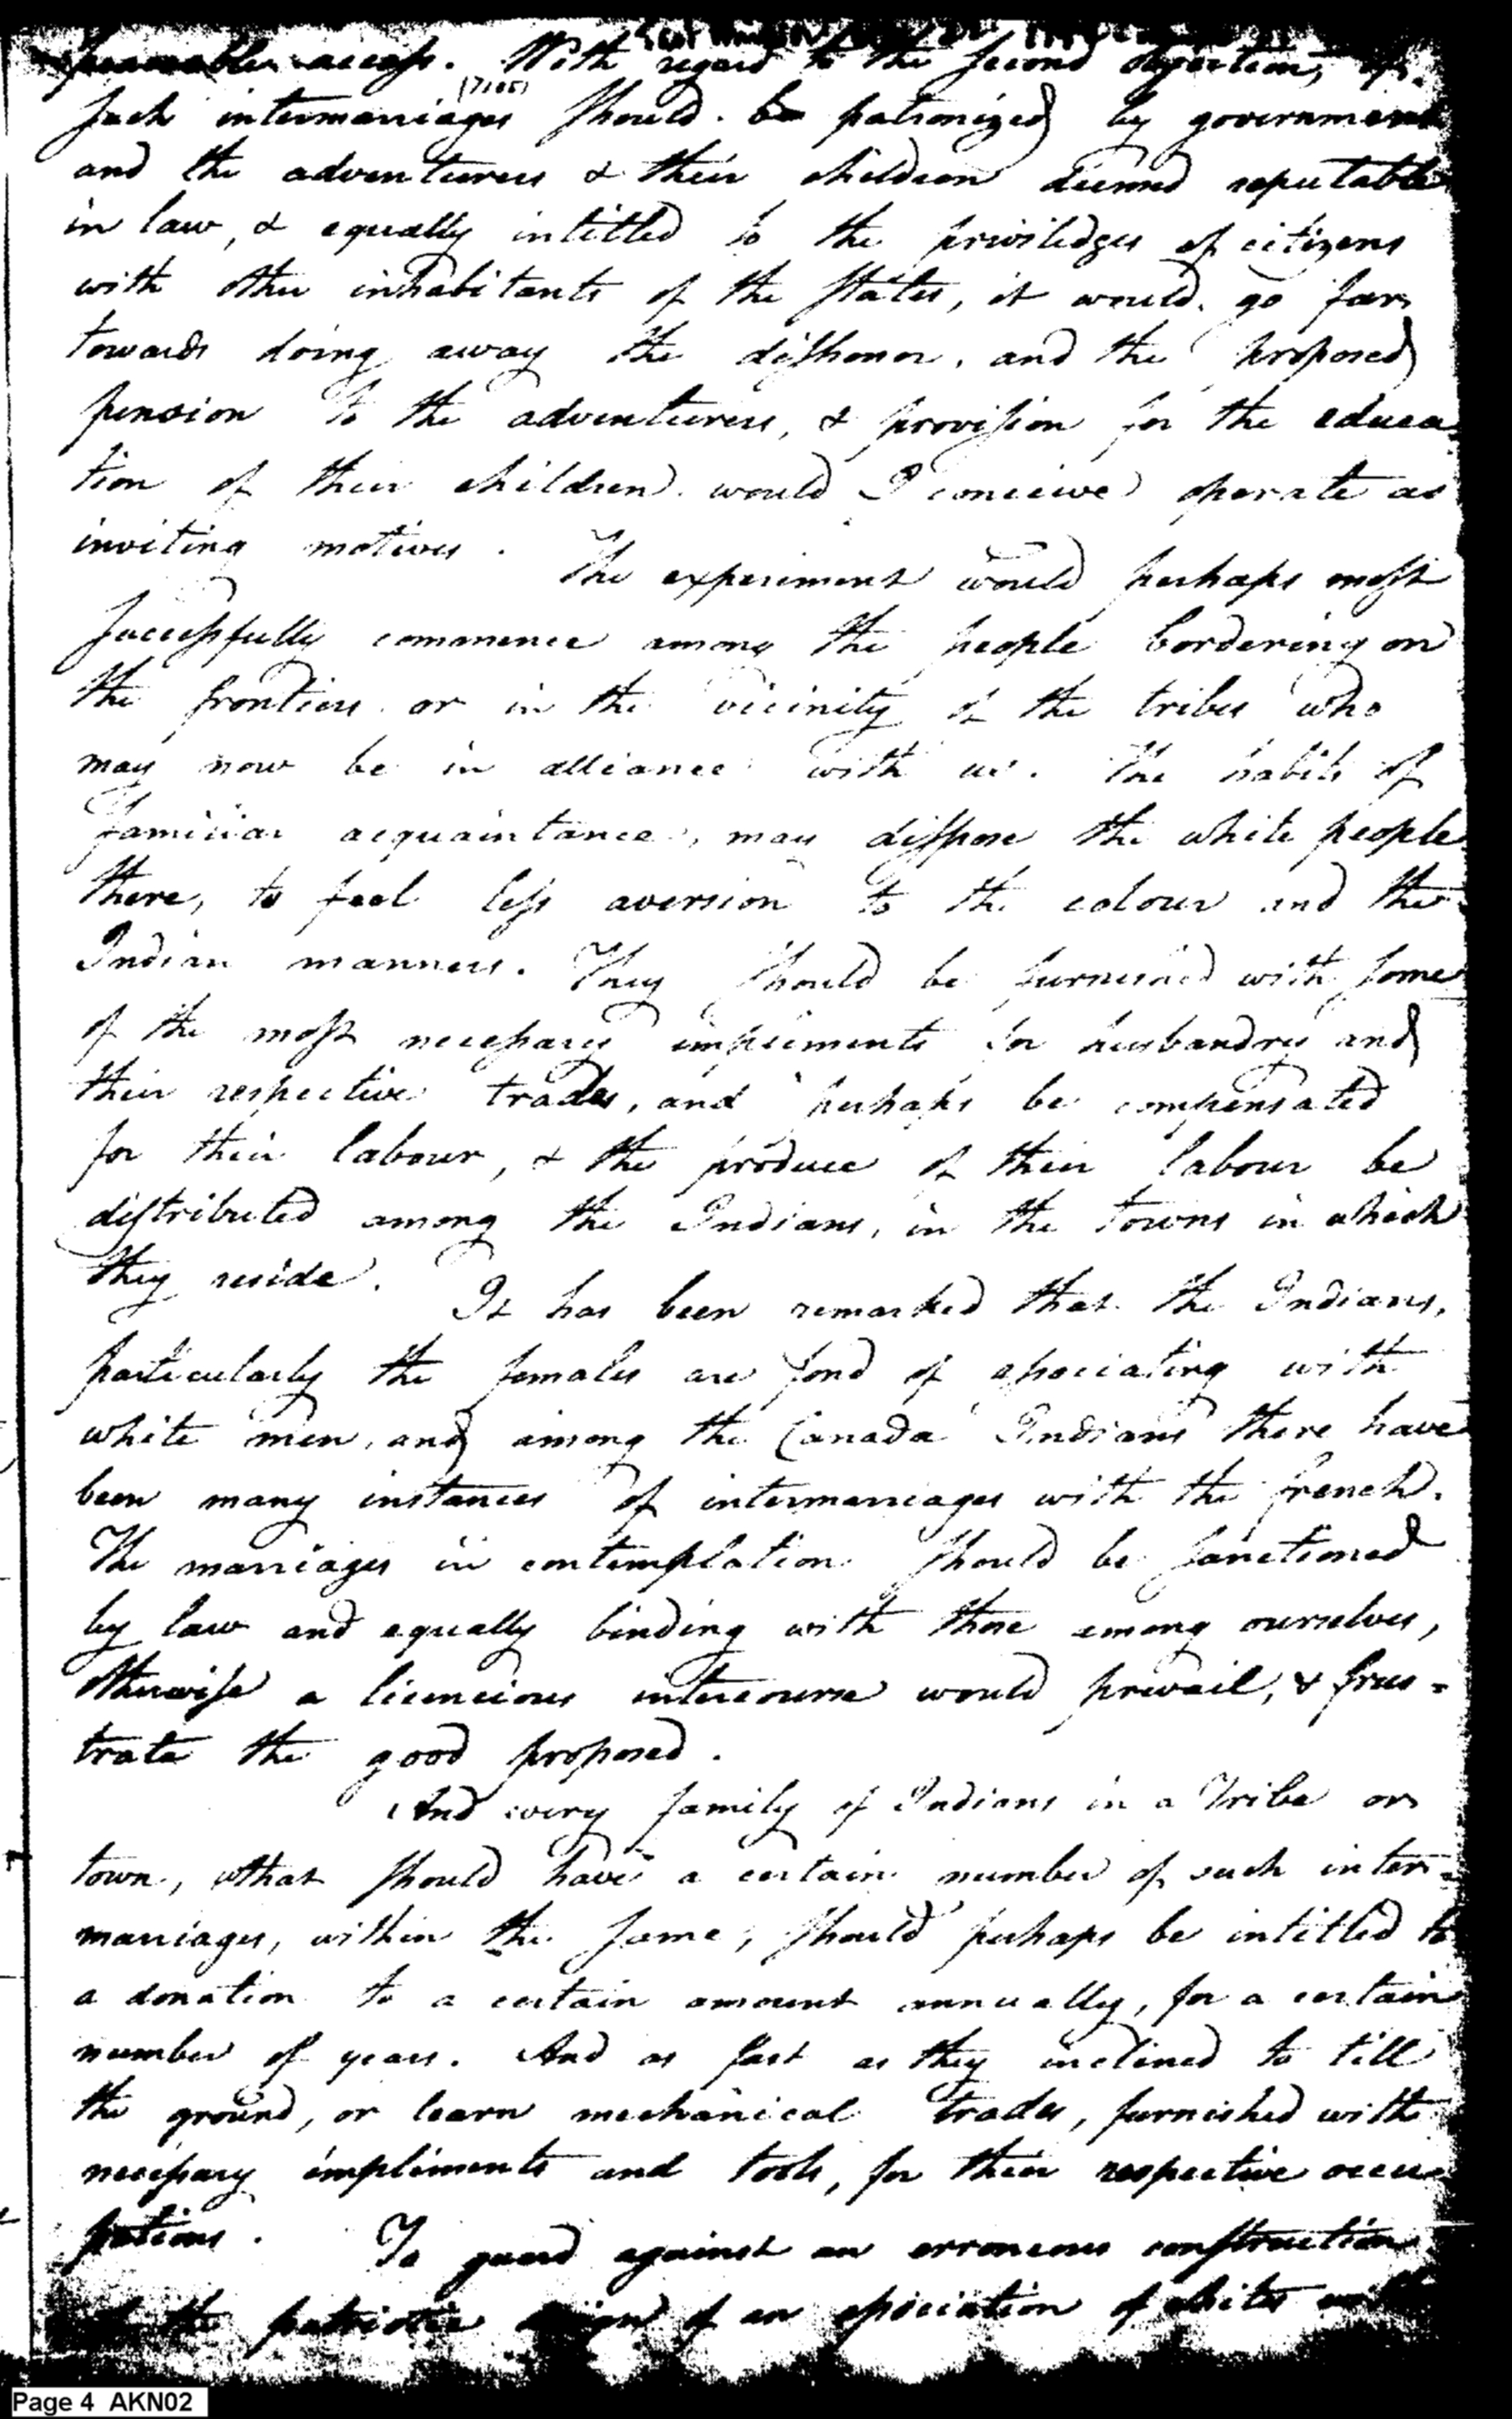 access. With regard to the second objection, if
(7105)
such intermarriages should be patronized by government
and the adventurers & their children deemed reputable
in law, & equally intitled to the priviledges of citizens
with other inhabitants of the States, it would go far
towards doing away the dishonor, and the proposed
pension to the adventurers, & provision for the educa
tion of their children would I conceive operate as
inviting motives. The experiment would perhaps most
successfully commence among the people bordering on
the frontiers or in the vicinity of the tribes who
may now be in alliance with us. The habits of
familiar acquaintance, may dispose the white people
there, to feel less aversion to the colour and the
Indian manners. They should be furnished with some
of the most necessary impliments for husbandry and
their respective trades, and perhaps be compensated
for their labour, & the produce of their labour be
distributed among the Indians, in the towns in which
they reside. It has been remarked that the Indians,
particularly the females are fond of associating with
white men, and among the Canada Indians there have
been many instances of intermarriages with the french.
The marriages in contemplation should be sanctioned
by law and equally binding with those among ourselves,
otherwise a licencious intercourse would prevail, & frus=
trate the good proposed.
And every family of Indians in a Tribe or
town, that should have a certain number of such inter=
marriages, within the same, should perhaps be intitled to
a donation to a certain amount annually, for a certain
number of years. And as fast as they inclined to till
the ground, or learn mechanical trades, furnished with
necessary impliments and tools, for their respective occu=
pations. To guard against an erroneous construction
the patriotic of an association of whites with
Page 4 AKN02